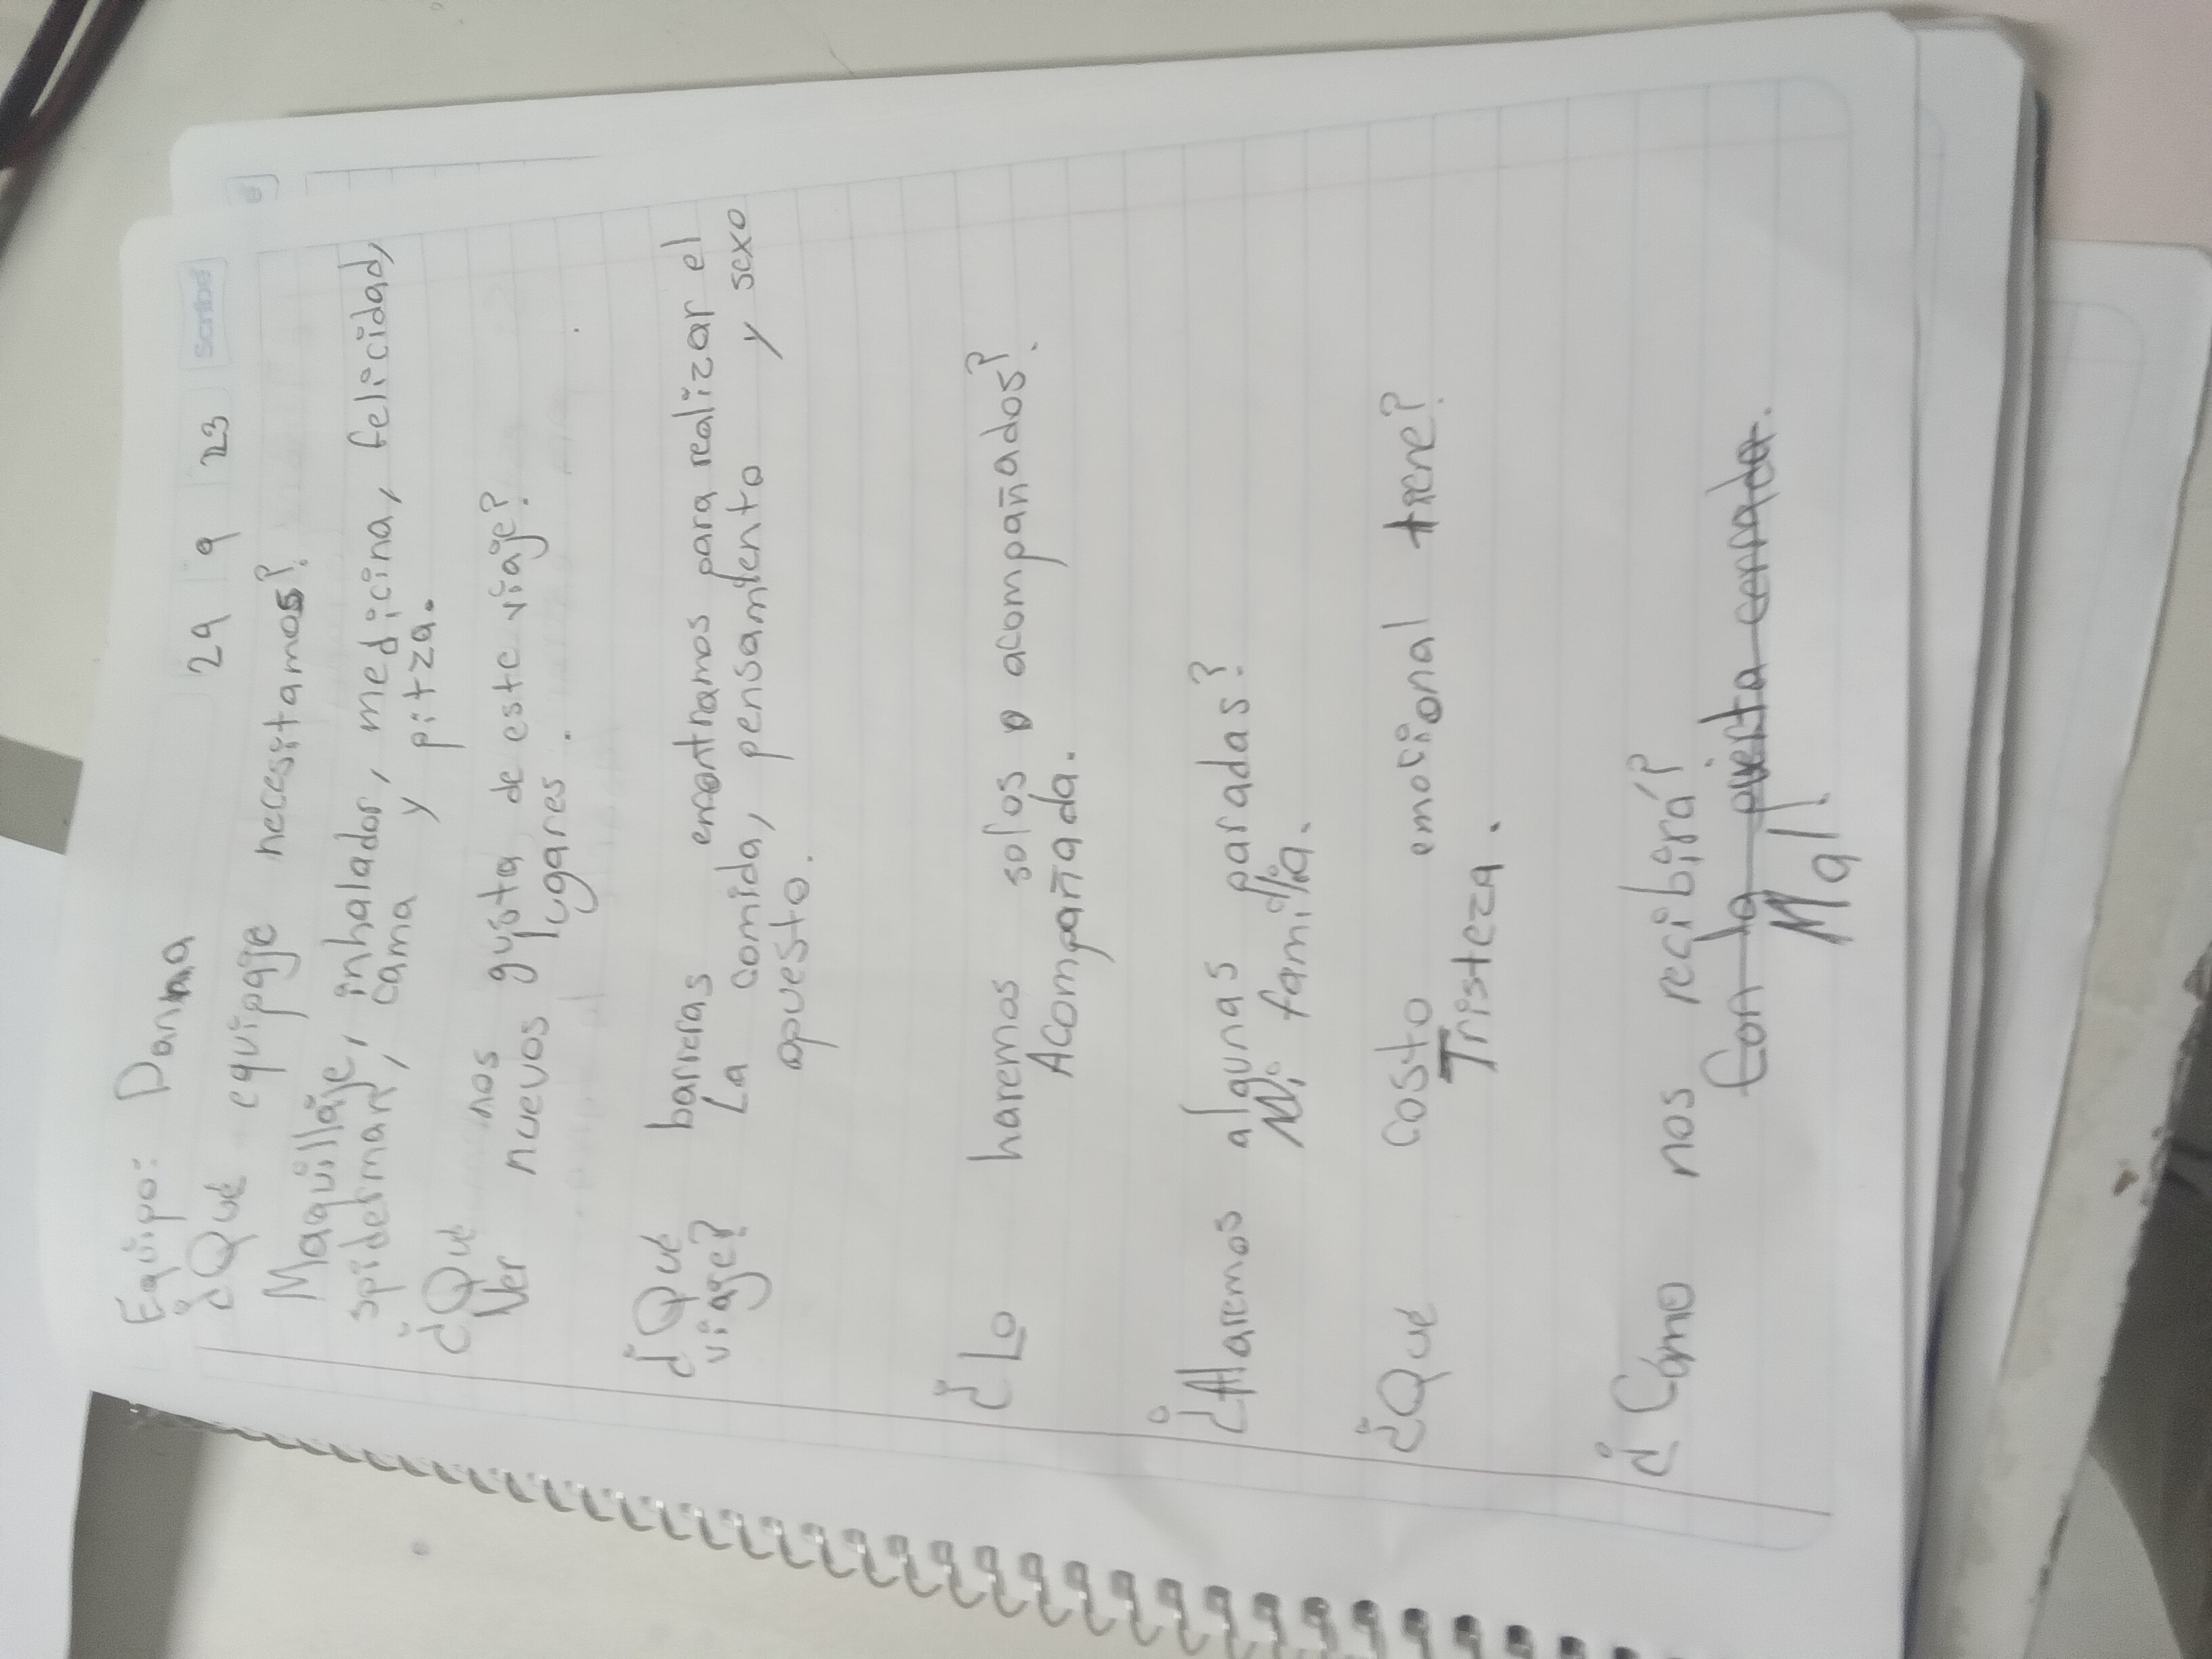 Scribe
29 9 23
Equipo: Danna
¿Qué equipaje necesitamos?
Maquillaje, inhalador, medicina, felicidad,
spiderman, cama y pitza.
¿Qué nos gusta de este viaje?
Ver nuevos lugares.
¿Qué barreras encontramos para realizar el
viage?
La comida, pensamiento y sexo
opuesto.
¿Lo haremos solos o acompañados?
Acompañada.
¿Haremos algunas paradas?
Mi familia.
¿Qué costo emocional tiene?
Tristeza.
¿Cómo nos recibirá?
Con la puerta cerrada.
Mal